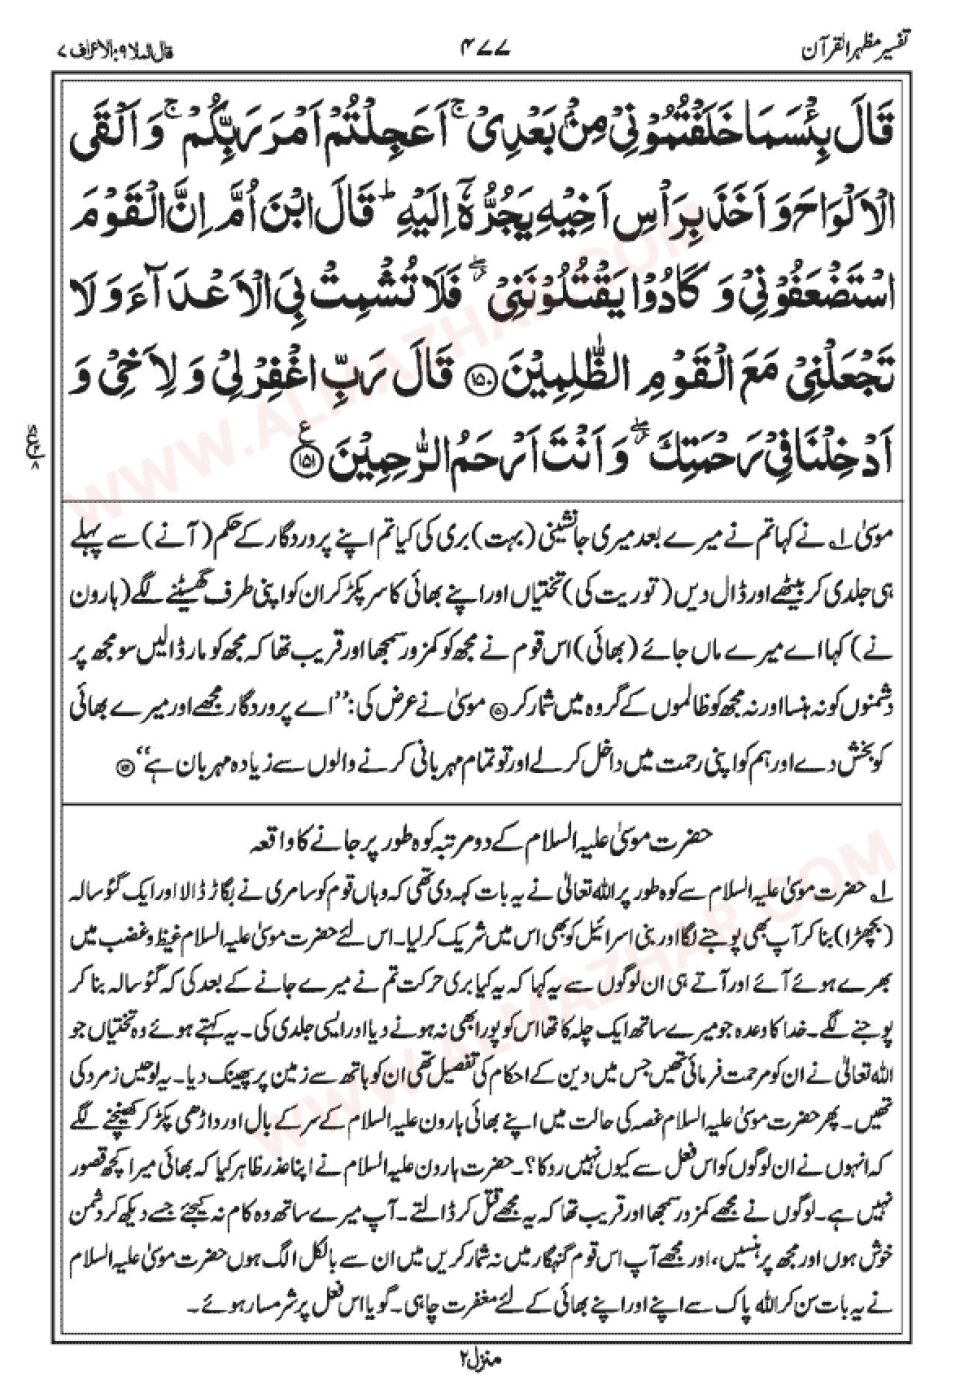 تفسیر مظہر القرآن
۴۷۷
قال الملا ۹: الاعراف ۷
قَالَ بِئْسَمَا خَلَفْتُمُوْنِیْ مِنْۢ بَعْدِیْ ۚ اَعَجِلْتُمْ اَمْرَ رَبِّكُمْ ۚ وَ اَلْقَی
الْاَلْوَاحَ وَ اَخَذَ بِرَاْسِ اَخِیْهِ یَجُرُّهٗۤ اِلَیْهِ ؕ قَالَ ابْنَ اُمَّ اِنَّ الْقَوْمَ
اسْتَضْعَفُوْنِیْ وَ كَادُوْا یَقْتُلُوْنَنِیْ ۖ فَلَا تُشْمِتْ بِیَ الْاَعْدَآءَ وَ لَا
تَجْعَلْنِیْ مَعَ الْقَوْمِ الظّٰلِمِیْنَ ﴿۱۵۰﴾ قَالَ رَبِّ اغْفِرْ لِیْ وَ لِاَخِیْ وَ
اَدْخِلْنَا فِیْ رَحْمَتِكَ ۖ وَ اَنْتَ اَرْحَمُ الرّٰحِمِیْنَ ﴿۱۵۱﴾ ع
موسیٰ ۱؎ نے کہا تم نے میرے بعد میری جانشینی (بہت) بری کی کیا تم اپنے پروردگار کے حکم (آنے) سے پہلے
ہی جلدی کر بیٹھے اور ڈال دیں (توریت کی) تختیاں اور اپنے بھائی کا سر پکڑ کر ان کو اپنی طرف گھسیٹنے لگے (ہارون
نے) کہا اے میرے ماں جائے (بھائی) اس قوم نے مجھ کو کمزور سمجھا اور قریب تھا کہ مجھ کو مار ڈالیں سو مجھ پر
دشمنوں کو نہ ہنسا اور نہ مجھ کو ظالموں کے گروہ میں شمار کر ﴿۱۵۰﴾ موسیٰ نے عرض کی: ’’اے پروردگار مجھے اور میرے بھائی
کو بخش دے اور ہم کو اپنی رحمت میں داخل کر لے اور تو تمام مہربانی کرنے والوں سے زیادہ مہربان ہے‘‘ ﴿۱۵۱﴾
حضرت موسیٰ علیہ السلام کے دو مرتبہ کوہ طور پر جانے کا واقعہ
۱؎ حضرت موسیٰ علیہ السلام سے کوہ طور پر اللہ تعالیٰ نے یہ بات کہہ دی تھی کہ وہاں قوم کو سامری نے بگاڑ ڈالا اور ایک گئو سالہ
(بچھڑا) بنا کر آپ بھی پوجنے لگا اور بنی اسرائیل کو بھی اس میں شریک کر لیا۔ اس لئے حضرت موسیٰ علیہ السلام غیظ و غضب میں
بھرے ہوئے آئے اور آتے ہی ان لوگوں سے یہ کہا کہ یہ کیا بری حرکت تم نے میرے جانے کے بعد کی کہ گئو سالہ بنا کر
پوجنے لگے۔ خدا کا وعدہ جو میرے ساتھ ایک چلہ کا تھا اس کو پورا بھی نہ ہونے دیا اور ایسی جلدی کی۔ یہ کہتے ہوئے وہ تختیاں جو
اللہ تعالیٰ نے ان کو مرحمت فرمائی تھیں جس میں دین کے احکام کی تفصیل تھی ان کو ہاتھ سے زمین پر پھینک دیا۔ یہ لوحیں زمرد کی
تھیں۔ پھر حضرت موسیٰ علیہ السلام غصہ کی حالت میں اپنے بھائی ہارون علیہ السلام کے سر کے بال اور داڑھی پکڑ کر کھینچنے لگے
کہ انہوں نے ان لوگوں کو اس فعل سے کیوں نہیں روکا؟۔ حضرت ہارون علیہ السلام نے اپنا عذر ظاہر کیا کہ بھائی میرا کچھ قصور
نہیں ہے۔ لوگوں نے مجھے کمزور سمجھا اور قریب تھا کہ یہ مجھے قتل کر ڈالتے۔ آپ میرے ساتھ وہ کام نہ کیجئے جسے دیکھ کر دشمن
خوش ہوں اور مجھ پر ہنسیں، اور مجھے آپ اس قوم گنہگار میں نہ شمار کریں میں ان سے بالکل الگ ہوں حضرت موسیٰ علیہ السلام
نے یہ بات سن کر اللہ پاک سے اپنے اور اپنے بھائی کے لئے مغفرت چاہی۔ گویا اس فعل پر شرمسار ہوئے۔
منزل ۲
WWW.ALMAZHAR.COM
WWW.ALMAZHAR.COM